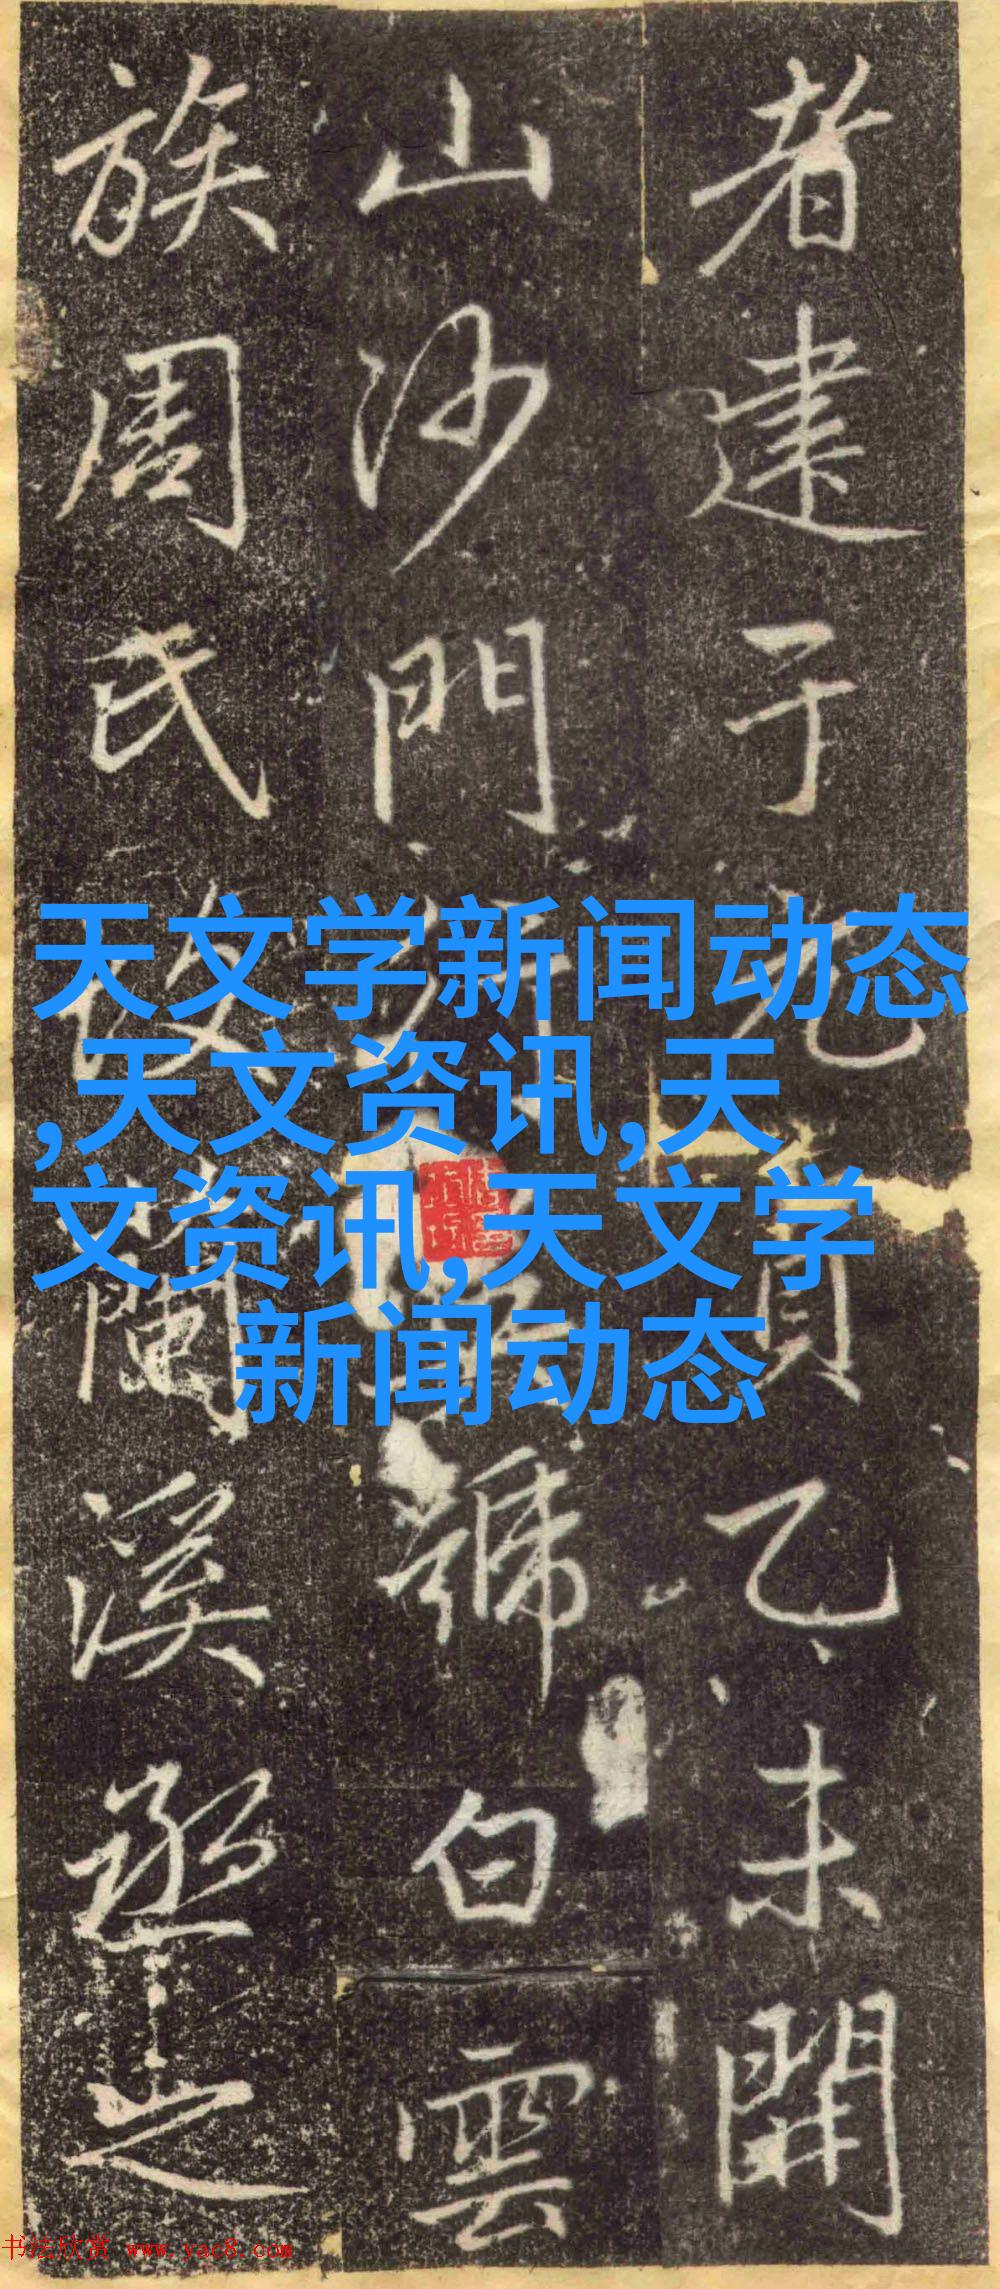 者建于元貞乙未開
山沙門號白雲
族周氏蘭溪丞之
天文学新闻动态
,天文资讯,天
文资讯,天文学
新闻动态
书法欣赏 www.yac8.com